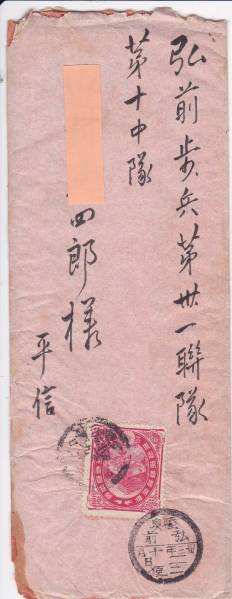 弘前歩兵第卅一聯隊
第十中隊
四郎様
平信